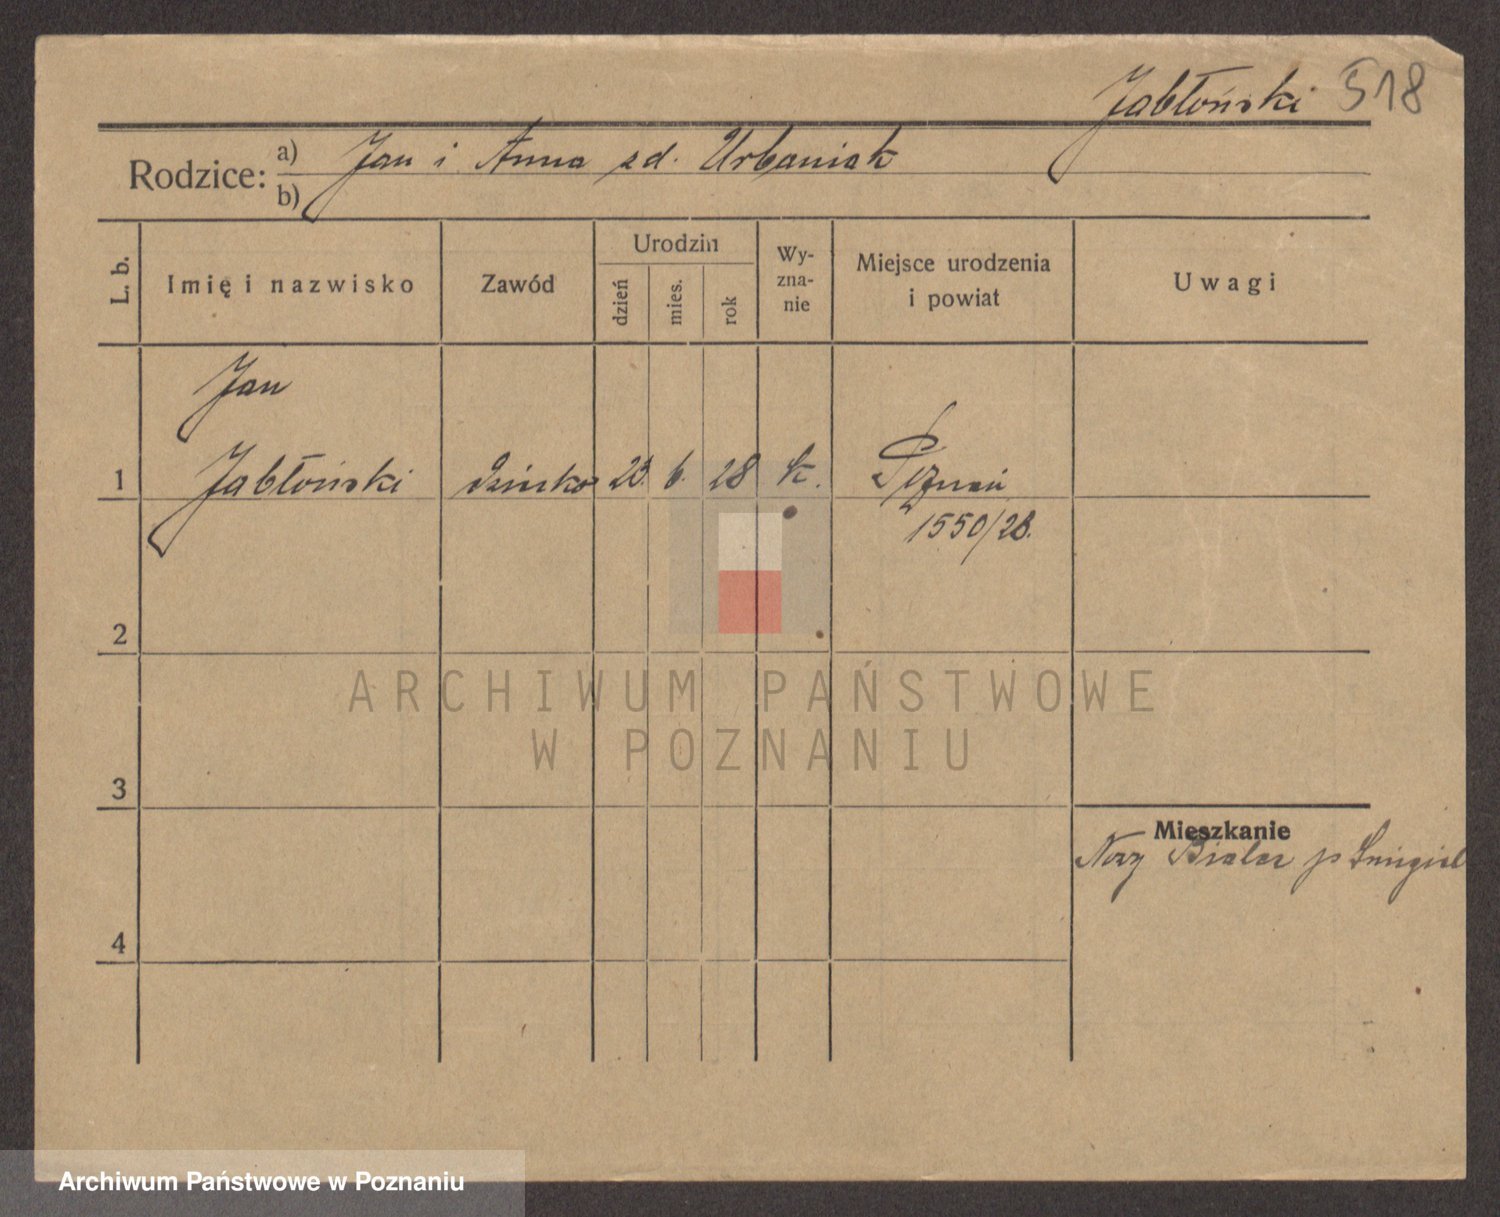 Jabłoński 518
Rodzice: a) Jan i Anna zd. Urbaniak
b)
L. b.
Imię i nazwisko
Zawód
Urodzin
dzień
mies.
rok
Wy-
zna-
nie
Miejsce urodzenia
i powiat
Uwagi
Jan
1 Jabłoński 23. 6. 28 k. Poznań
1550/28.
2
3
4
Mieszkanie
p Śmigiel
ARCHIWUM PAŃSTWOWE
W POZNANIU
Archiwum Państwowe w Poznaniu